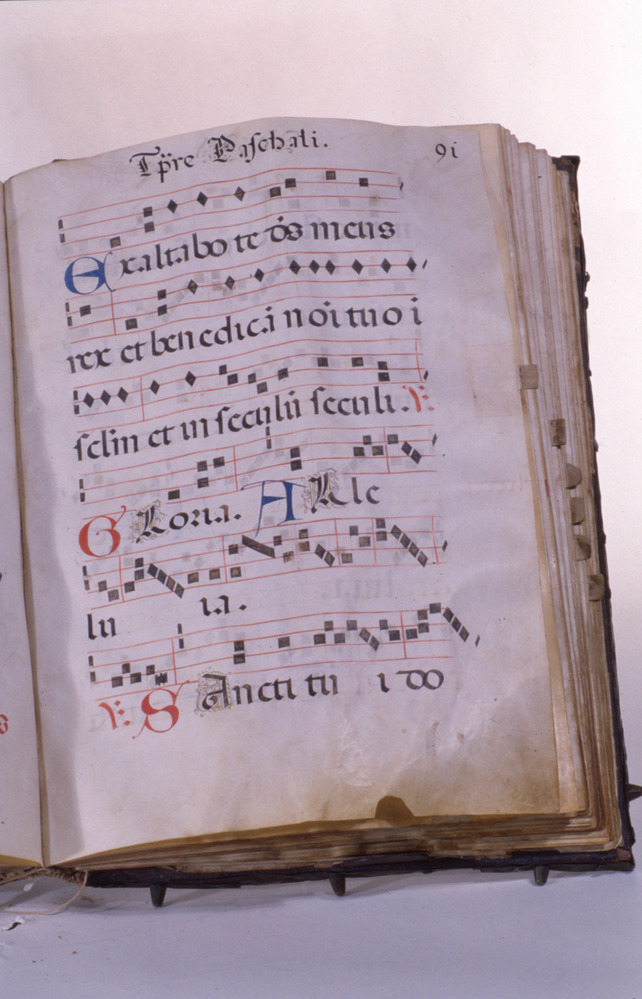 Tp̄re Paschali. 91
Exaltabo te d̄s meus
rex et benedicā nōi tuo i
sclm̄ et in seculū seculi. ℣:
Gloria. Alle
lu ia.
℣: Sancti tu i do